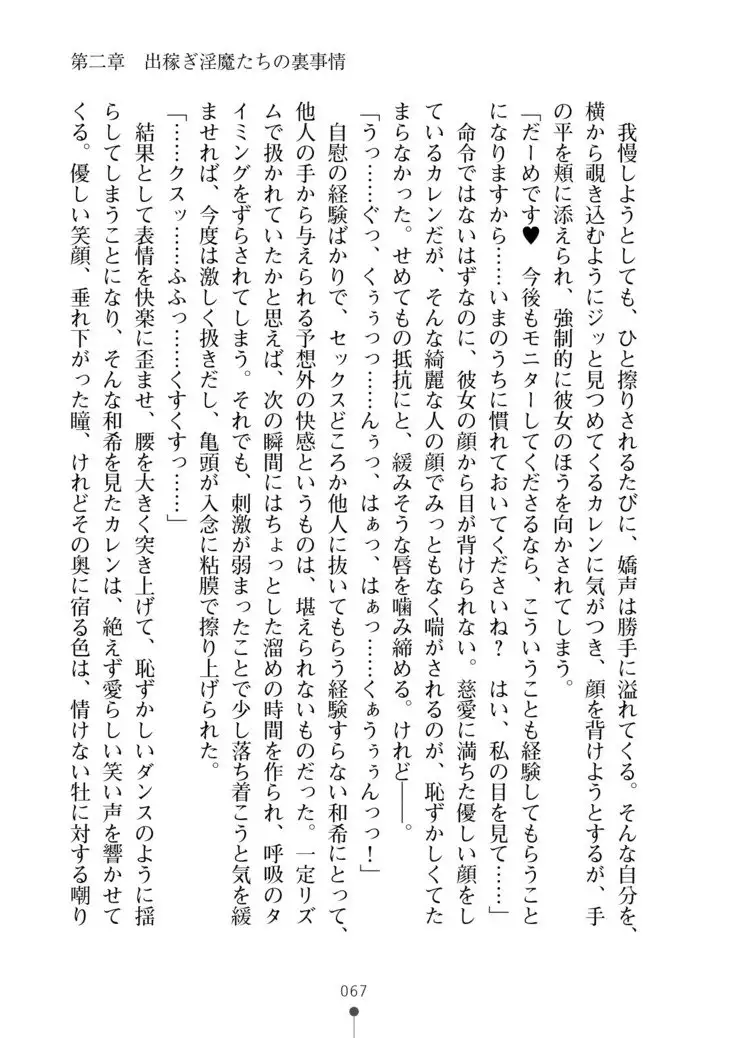 第二章　出稼ぎ淫魔たちの裏事情
　我慢しようとしても、ひと擦りされるたびに、嬌声は勝手に溢れてくる。そんな自分を、
横から覗き込むようにジッと見つめてくるカレンに気がつき、顔を背けようとするが、手
の平を頬に添えられ、強制的に彼女のほうを向かされてしまう。
「だーめです♥　今後もモニターしてくださるなら、こういうことも経験してもらうこと
になりますから……いまのうちに慣れておいてくださいね？　はい、私の目を見て……」
　命令ではないはずなのに、彼女の顔から目が背けられない。慈愛に満ちた優しい顔をし
ているカレンだが、そんな綺麗な人の顔でみっともなく喘がされるのが、恥ずかしくてた
まらなかった。せめてもの抵抗にと、緩みそうな唇を噛み締める。けれど――。
「うっ……ぐっ、くぅぅっっ……んぅっ、はぁっ、はぁっ……くぁうぅぅんっっ！」
　自慰の経験ばかりで、セックスどころか他人に抜いてもらう経験すらない和希にとって、
他人の手から与えられる予想外の快感というものは、堪えられないものだった。一定リズ
ムで扱かれていたかと思えば、次の瞬間にはちょっとした溜めの時間を作られ、呼吸のタ
イミングをずらされてしまう。それでも、刺激が弱まったことで少し落ち着こうと気を緩
ませれば、今度は激しく扱きだし、亀頭が入念に粘膜で擦り上げられた。
「……クスッ……ふふっ……くすくすっ……」
　結果として表情を快楽に歪ませ、腰を大きく突き上げて、恥ずかしいダンスのように揺
らしてしまうことになり、そんな和希を見たカレンは、絶えず愛らしい笑い声を響かせて
くる。優しい笑顔、垂れ下がった瞳、けれどその奥に宿る色は、情けない牡に対する嘲り
067